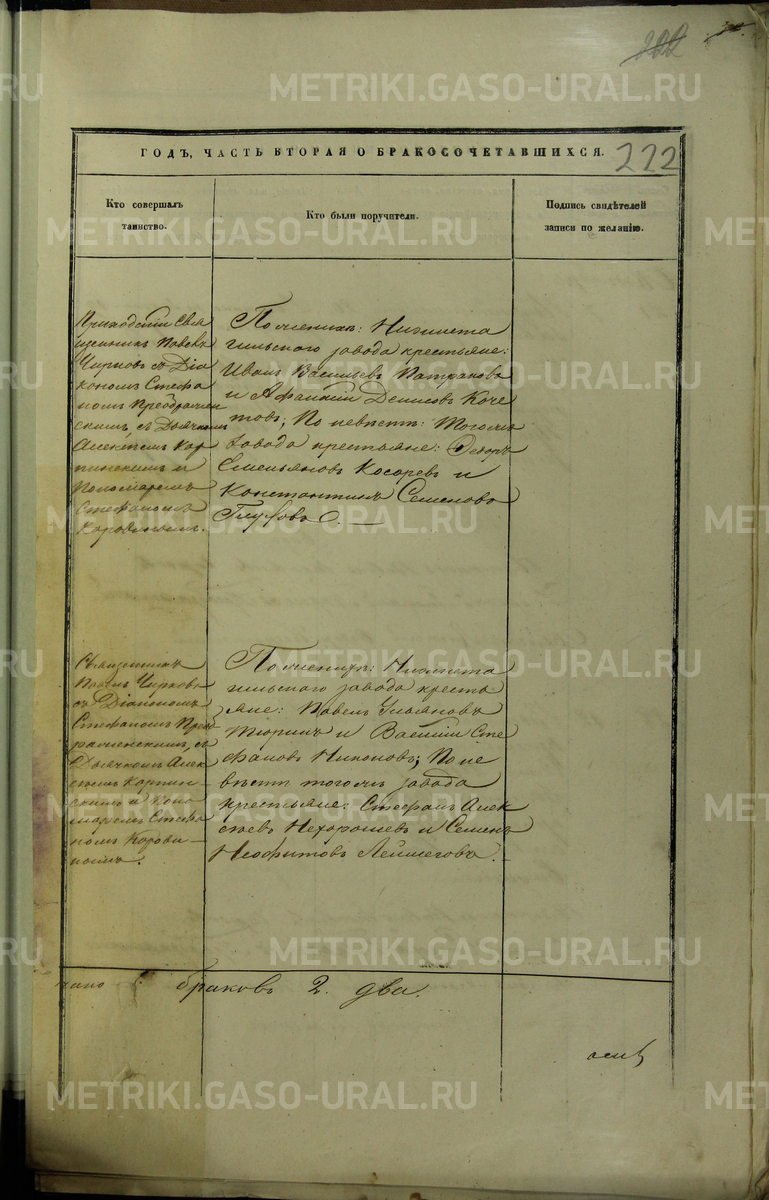 222
222
ГОДЪ, ЧАСТЬ ВТОРАЯ О БРАКОСОЧЕТАВШИХСЯ.
Кто совершалъ
таинство.
Кто были поручители.
Подпись свидѣтелей
записи по желанію.
Приходскій Свя
щенникъ Павелъ
Чирковъ съ Діа
кономъ Стефа
номъ Преображен
скимъ, съ Дьячкомъ
Алексѣемъ Кар
пинскимъ и
Пономаремъ
Стефаномъ
Коровинымъ.
По женихѣ: Нижнета
гильскаго завода крестьяне:
Иванъ Васильевъ Патраковъ
и Афанасій Денисовъ Коче
товъ; По невѣстѣ: Тогожъ
завода крестьяне: Ѳедоръ
Емельяновъ Косаревъ и
Константинъ Семеновъ
Священникъ
Павелъ Чирковъ
съ Діакономъ
Стефаномъ Преоб
раженскимъ, съ
Дьячкомъ Алек
сѣемъ Карпин
скимъ и Поно
маремъ Стефа
номъ Корови
нымъ.
По женихѣ: Нижнета
гильскаго завода кресть
яне: Павелъ Ульяновъ
Тюринъ и Василій Сте
фановъ Никоновъ; По не
вѣстѣ тогожъ завода
крестьяне: Стефанъ Алек
сѣевъ Нехорошевъ и Семенъ
Неофитовъ
браковъ 2. два.
METRIKI.GASO-URAL.RU